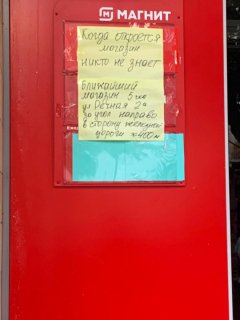 МАГНИТ
Когда откроется
магазин
никто не знает
Ближайший
магазин 5ка
ул Речная 2а
за угол направо
в сторону железной
дороги